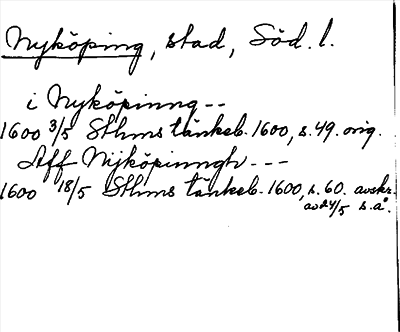 Nyköping, stad, Söd. l.
i Nyköpinng --
1600 3/5 Sthms tänkeb. 1600, s. 49. orig.
Aff Nijköpinngh ---
1600 18/5 Sthms tänkeb. 1600, s. 60. avskr.
av 24/5 s.å.